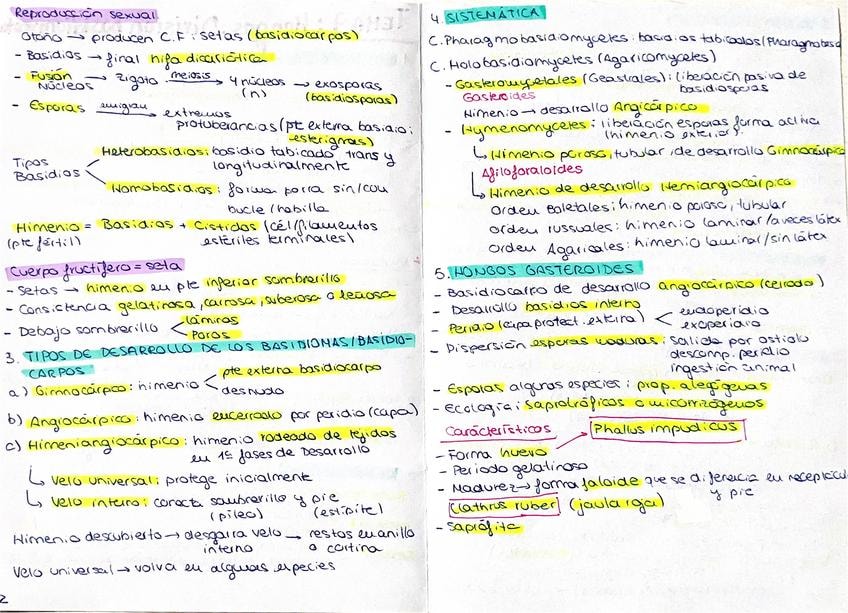 Reproducción sexual
Otoño → producen C.F: setas (basidiocarpos)
- Basidios → final hifa dicariótica
- Fusión núcleos → zigoto meiosis → 4 núcleos (n) → exosporas (basidiosporas)
- Esporas emigran → extremos
protuberancias (pte externa basidio: esterigmas)
Tipos Basidios
Heterobasidios: basidio tabicado trans y longitudinalmente
Homobasidios: forma porra sin/con bucle/hebilla
Himenio = Basidios + Cistidos (cél/filamentos
(pte fértil) estériles terminales)
Cuerpo fructífero = seta
- Setas → himenio en pte inferior sombrerillo
- Consistencia gelatinosa, carnosa, suberosa o leñosa
- Debajo sombrerillo
láminas
Poros
3. TIPOS DE DESARROLLO DE LOS BASIDIOMAS/BASIDIO-
CARPOS
a) Gimnocárpico: himenio
pte externa basidiocarpo
desnudo
b) Angiocárpico: himenio encerrado por peridio (capa)
c) Himeniangiocárpico: himenio rodeado de tejidos
en 1ª fases de Desarrollo
↳ Velo universal: protege inicialmente
↳ Velo interno: conecta sombrerillo y pie
(pileo) (estípite)
Himenio descubierto → desgarra velo interno → restos en anillo o cortina
Velo universal → volva en algunas especies
2
4. SISTEMÁTICA
C. Phragmobasidiomycetes: basidios tabicados (Phragmobasid
C. Holobasidiomycetes (Agaricomycetes)
- Gasteromycetales (Geastrales): liberación pasiva de
Gasteroides basidiosporas
Himenio → desarrollo Angicárpico
- Hymenomycetes: liberación esporas forma activa
(himenio exterior).
↳ Himenio poroso, tubular, de desarrollo Gimnocárpico
Afiloforaloides
↳ Himenio de desarrollo Hemiangiocárpico
Orden Boletales: himenio poroso, tubular
Orden russuales: himenio laminar/a veces látex
Orden Agaricales: himenio laminar/sin látex
5. HONGOS GASTEROIDES
- Basidiocarpo de desarrollo angiocárpico (cerrado)
- Desarrollo basidios interno
- Peridio (capa protect. externa)
endoperidio
exoperidio
- Dispersión esporas maduras: salida por ostiolo
descomp. peridio
ingestión animal
- Esporas algunas especies: prop. alergógenas
- Ecología: saprotróficos o micorrizógenos
Característicos
Phallus impudicus
- Forma huevo
- Periodo gelatinoso
- Madurez → forma faloide que se diferencia en receptácul
y pie
Clathrus ruber (jaula roja)
- Saprófita